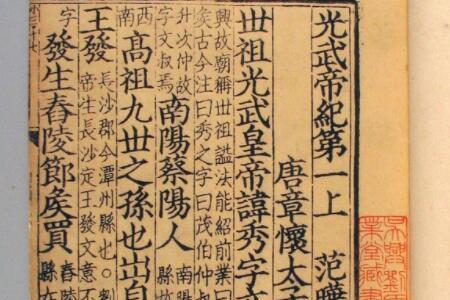 光武帝紀第一上 范曄
唐章懷太子
世祖光武皇帝諱秀字文
興故廟稱世祖謚法能紹前業曰
矦古今注曰秀之字曰茂伯仲
升次仲故
字文叔焉
南陽蔡陽人
南陽
縣故
西
南
高祖九世之孫也出自
王發
長沙郡今潭州縣也〇劉
帝生長沙定王發文意不
字
發生舂陵節矦買
舂陵
縣在
吳興劉
業堂藏書